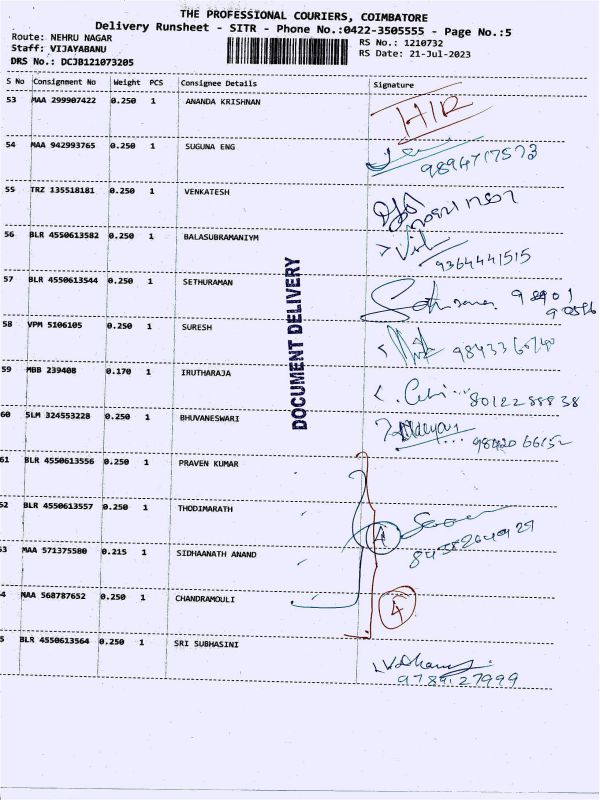 THE PROFESSIONAL COURIERS, COIMBATORE
Delivery Runsheet - SITR - Phone No.:0422-3505555 - Page No.:5
Route: NEHRU NAGAR
RS No.: 1210732
Staff: VIJAYABANU
RS Date: 21-Jul-2023
DRS No.: DCJB121073205
S No Consignment No Weight PCS Consignee Details Signature
53 MAA 299907422 0.250 1 ANANDA KRISHNAN
54 MAA 942993765 0.250 1 SUGUNA ENG
9894717573
55 TRZ 135518181 0.250 1 VENKATESH
56 BLR 4550613582 0.250 1 BALASUBRAMANIYM
9364441515
57 BLR 4550613544 0.250 1 SETHURAMAN
58 VPM 5106105 0.250 1 SURESH
59 MBB 239408 0.170 1 IRUTHARAJA
8012288838
60 SLM 324553228 0.250 1 BHUVANESWARI
61 BLR 4550613556 0.250 1 PRAVEN KUMAR
52 BLR 4550613557 0.250 1 THODIMARATH
4
53 MAA 571375580 0.215 1 SIDHAANATH ANAND
4 MAA 568787652 0.250 1 CHANDRAMOULI
4
5 BLR 4550613564 0.250 1 SRI SUBHASINI
9789127999
DOCUMENT DELIVERY